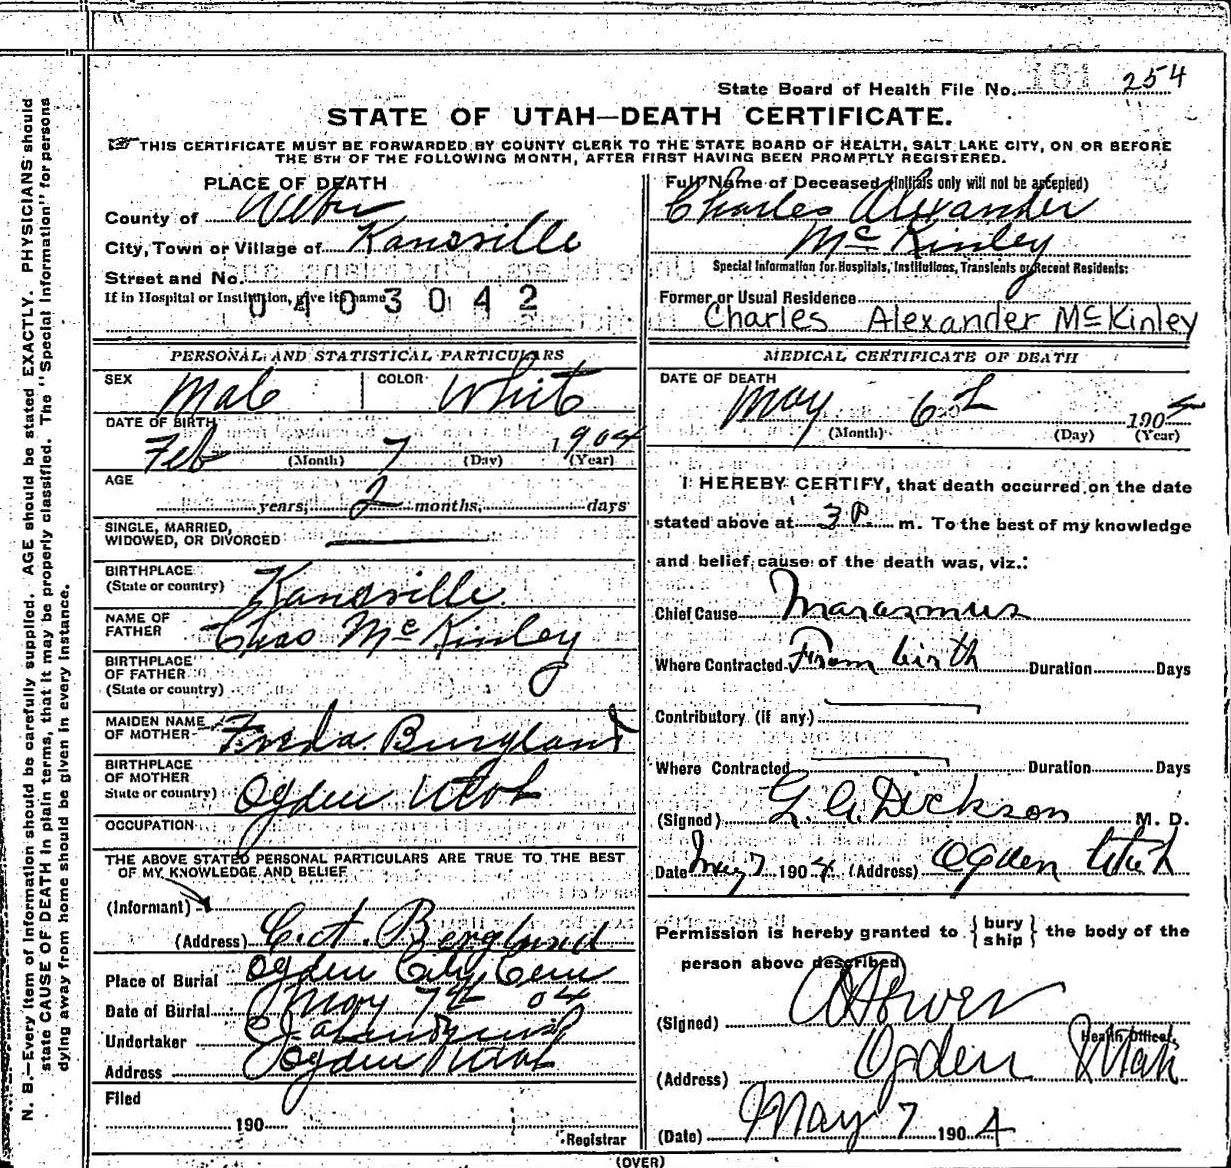 State Board of Health File No. 161 254
STATE OF UTAH—DEATH CERTIFICATE.
☞ THIS CERTIFICATE MUST BE FORWARDED BY COUNTY CLERK TO THE STATE BOARD OF HEALTH, SALT LAKE CITY, ON OR BEFORE
THE 5TH OF THE FOLLOWING MONTH, AFTER FIRST HAVING BEEN PROMPTLY REGISTERED.
PLACE OF DEATH
County of Weber
City, Town or Village of Kansville
Street and No.
If in Hospital or Institution, give its name
0403042
PERSONAL AND STATISTICAL PARTICULARS
SEX Male COLOR White
DATE OF BIRTH
Feb (Month) 7 (Day) 1904 (Year)
AGE
years, 2 months, days
SINGLE, MARRIED,
WIDOWED, OR DIVORCED
BIRTHPLACE
(State or country) Kansville
NAME OF
FATHER Chas McKinley
BIRTHPLACE
OF FATHER
(State or country)
MAIDEN NAME
OF MOTHER Freda Burgland
BIRTHPLACE
OF MOTHER
State or country) Ogden Utah
OCCUPATION
THE ABOVE STATED PERSONAL PARTICULARS ARE TRUE TO THE BEST
OF MY KNOWLEDGE AND BELIEF
(Informant)
(Address) C. A. Berglund
Place of Burial Ogden City Cem
Date of Burial May 7th 04
Undertaker
Address Ogden Utah
Filed
190
Registrar
Full Name of Deceased (Initials only will not be accepted)
Charles Alexander
McKinley
Special Information for Hospitals, Institutions, Transients or Recent Residents:
Former or Usual Residence
Charles Alexander McKinley
MEDICAL CERTIFICATE OF DEATH
DATE OF DEATH
May 6th 1904
(Month) (Day) (Year)
I HEREBY CERTIFY, that death occurred on the date
stated above at 3 P m. To the best of my knowledge
and belief cause of the death was, viz.:
Chief Cause Marasmus
Where Contracted From birth Duration Days
Contributory (if any)
Where Contracted Duration Days
(Signed) G. A. Dickson M. D.
Date May 7 1904 (Address) Ogden Utah
Permission is hereby granted to { bury
ship } the body of the
person above described
(Signed)
Health Officer,
(Address) Ogden Utah
(Date) May 7 1904
(OVER)
N. B.—Every item of information should be carefully supplied. AGE should be stated EXACTLY. PHYSICIANS should
state CAUSE OF DEATH in plain terms, that it may be properly classified. The "Special Information" for persons
dying away from home should be given in every instance.